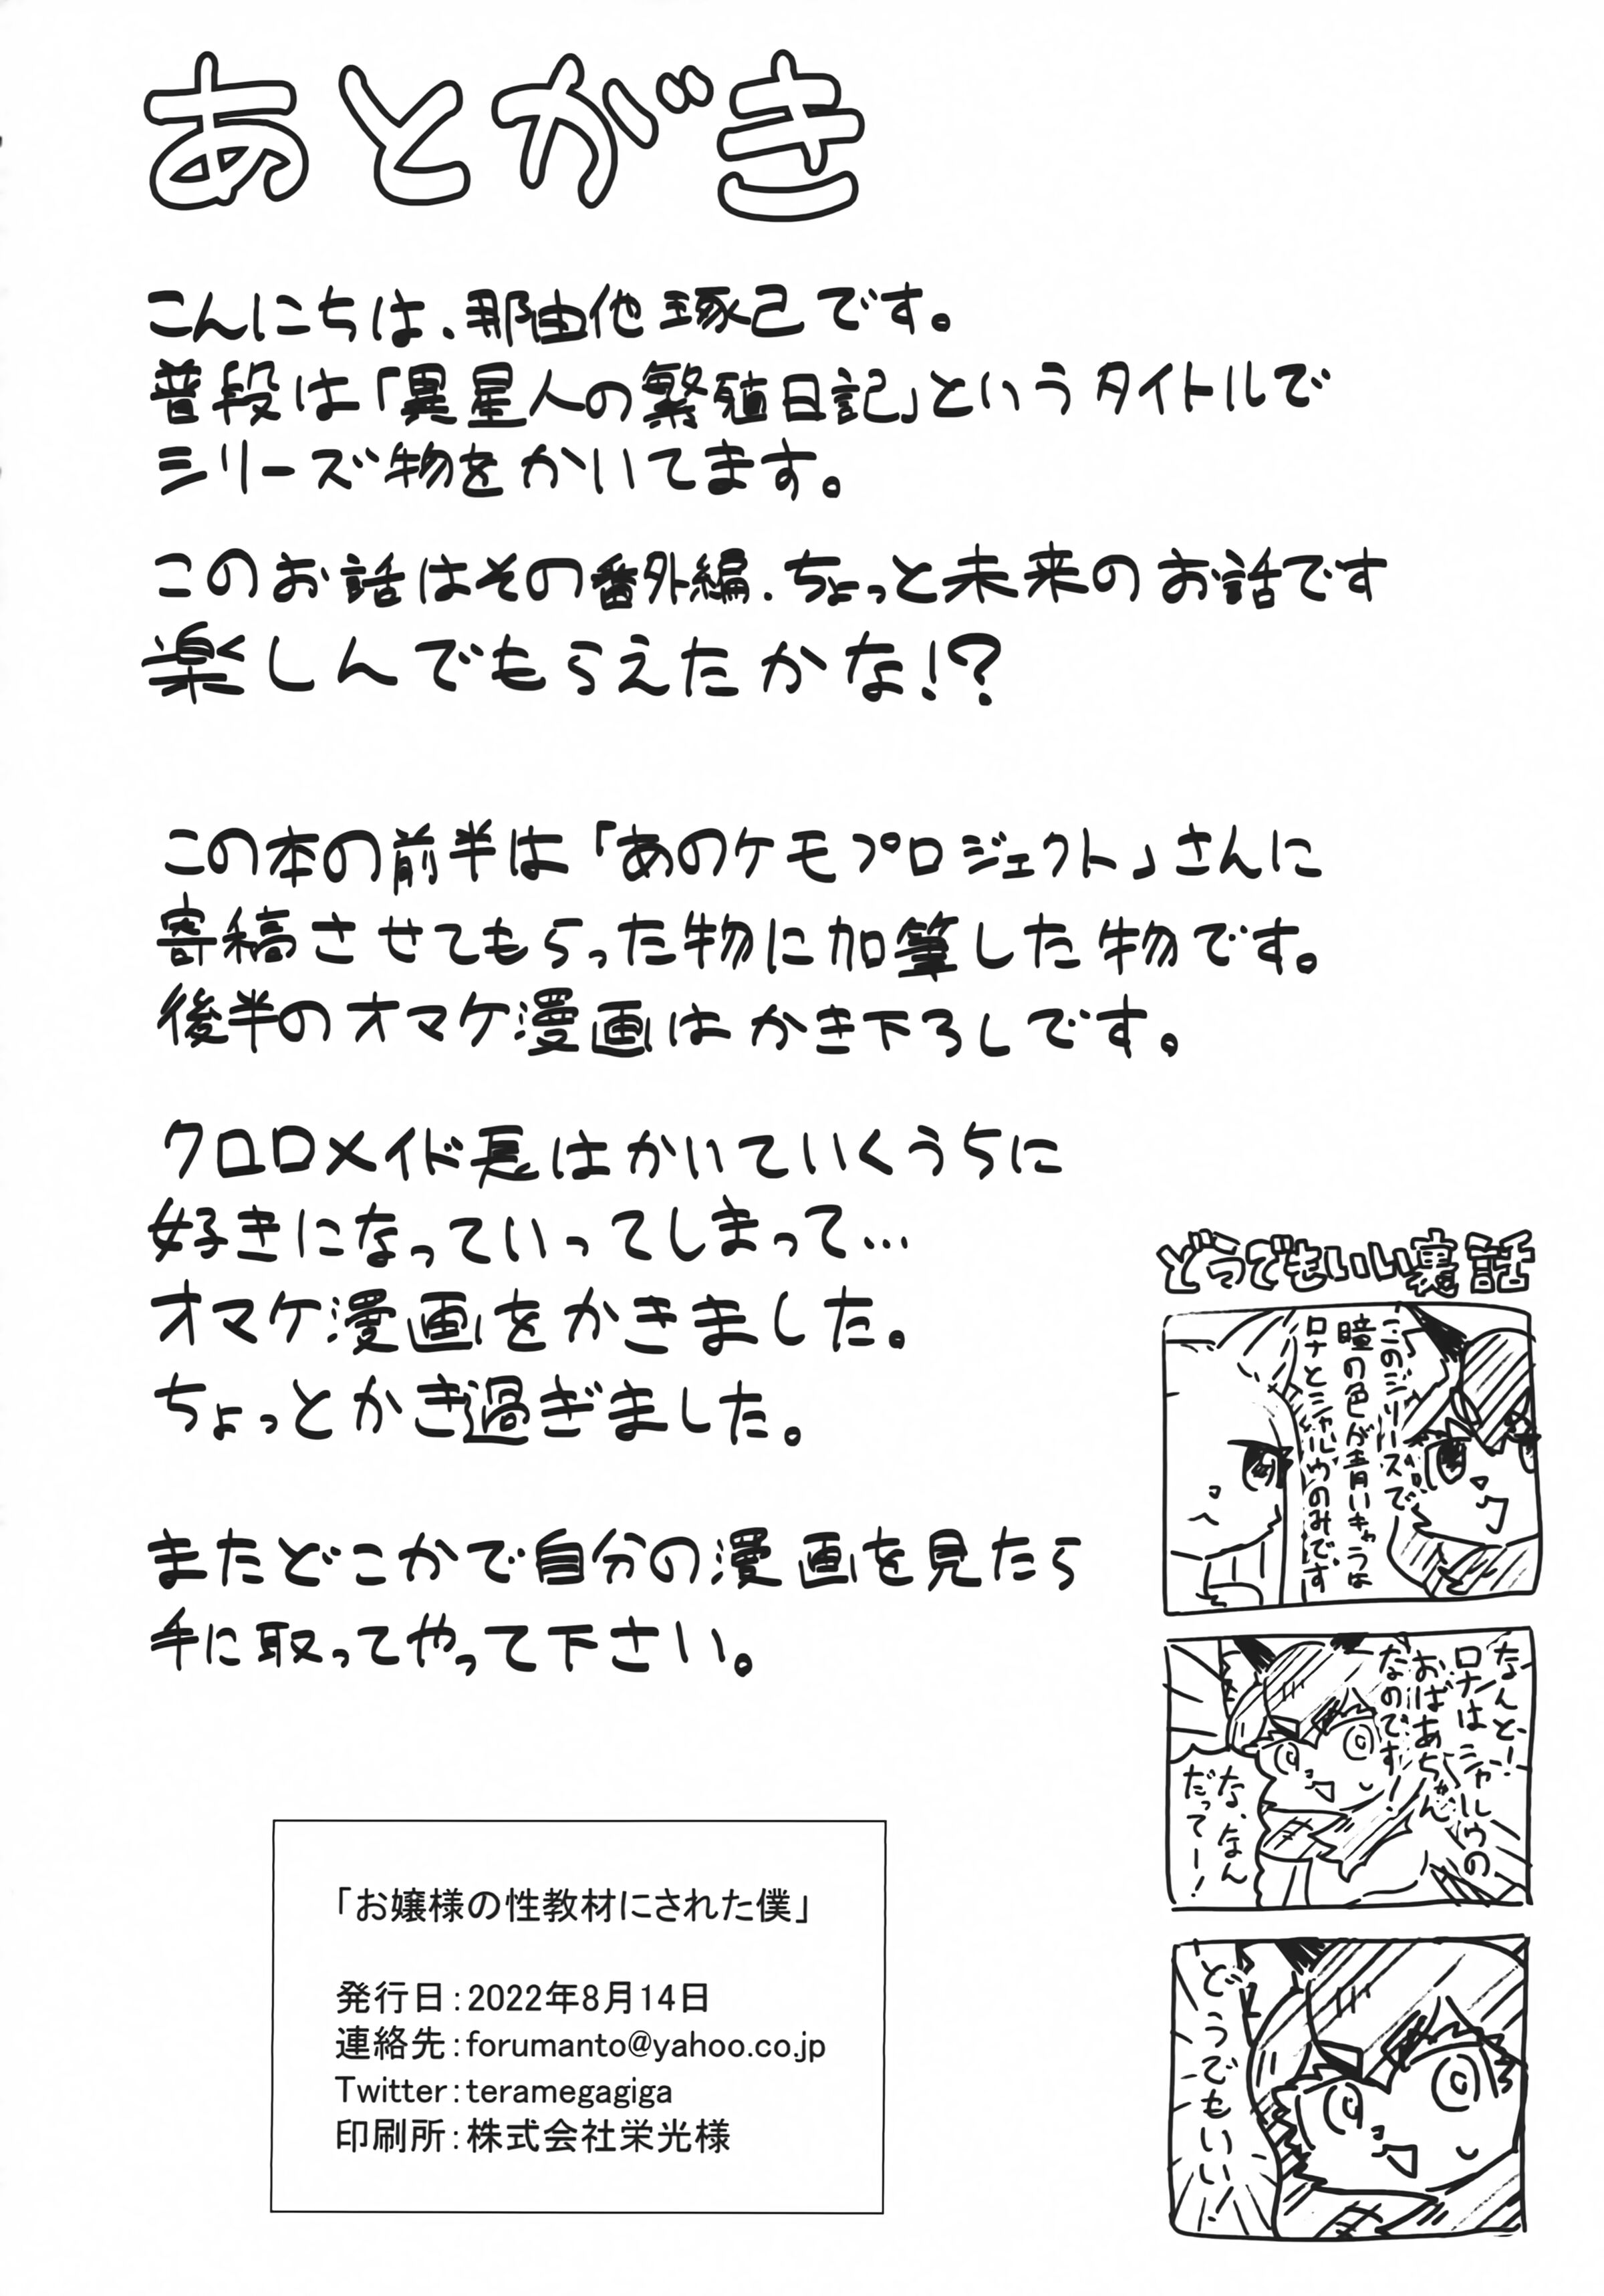 あとがき
こんにちは、那由他琢己です。
普段は「異星人の繁殖日記」というタイトルで
シリーズ物をかいてます。
このお話はその番外編、ちょっと未来のお話です
楽しんでもらえたかな!?
この本の前半は「あのケモプロジェクト」さんに
寄稿させてもらった物に加筆した物です。
後半のオマケ漫画はかき下ろしです。
クロロメイド長はかいていくうちに
好きになっていってしまって…
オマケ漫画をかきました。
ちょっとかき過ぎました。
またどこかで自分の漫画を見たら
手に取ってやって下さい。
どうでもいい裏話
このシリーズで
瞳の色が青いキャラは
ロナとシャルゥのみです
なんと!
ロナはシャルゥの
おばあちゃん
なのです!
な、なん
だってー!
どうでもいい!
「お嬢様の性教材にされた僕」
発行日：2022年8月14日
連絡先：forumanto@yahoo.co.jp
Twitter：teramegagiga
印刷所：株式会社栄光様